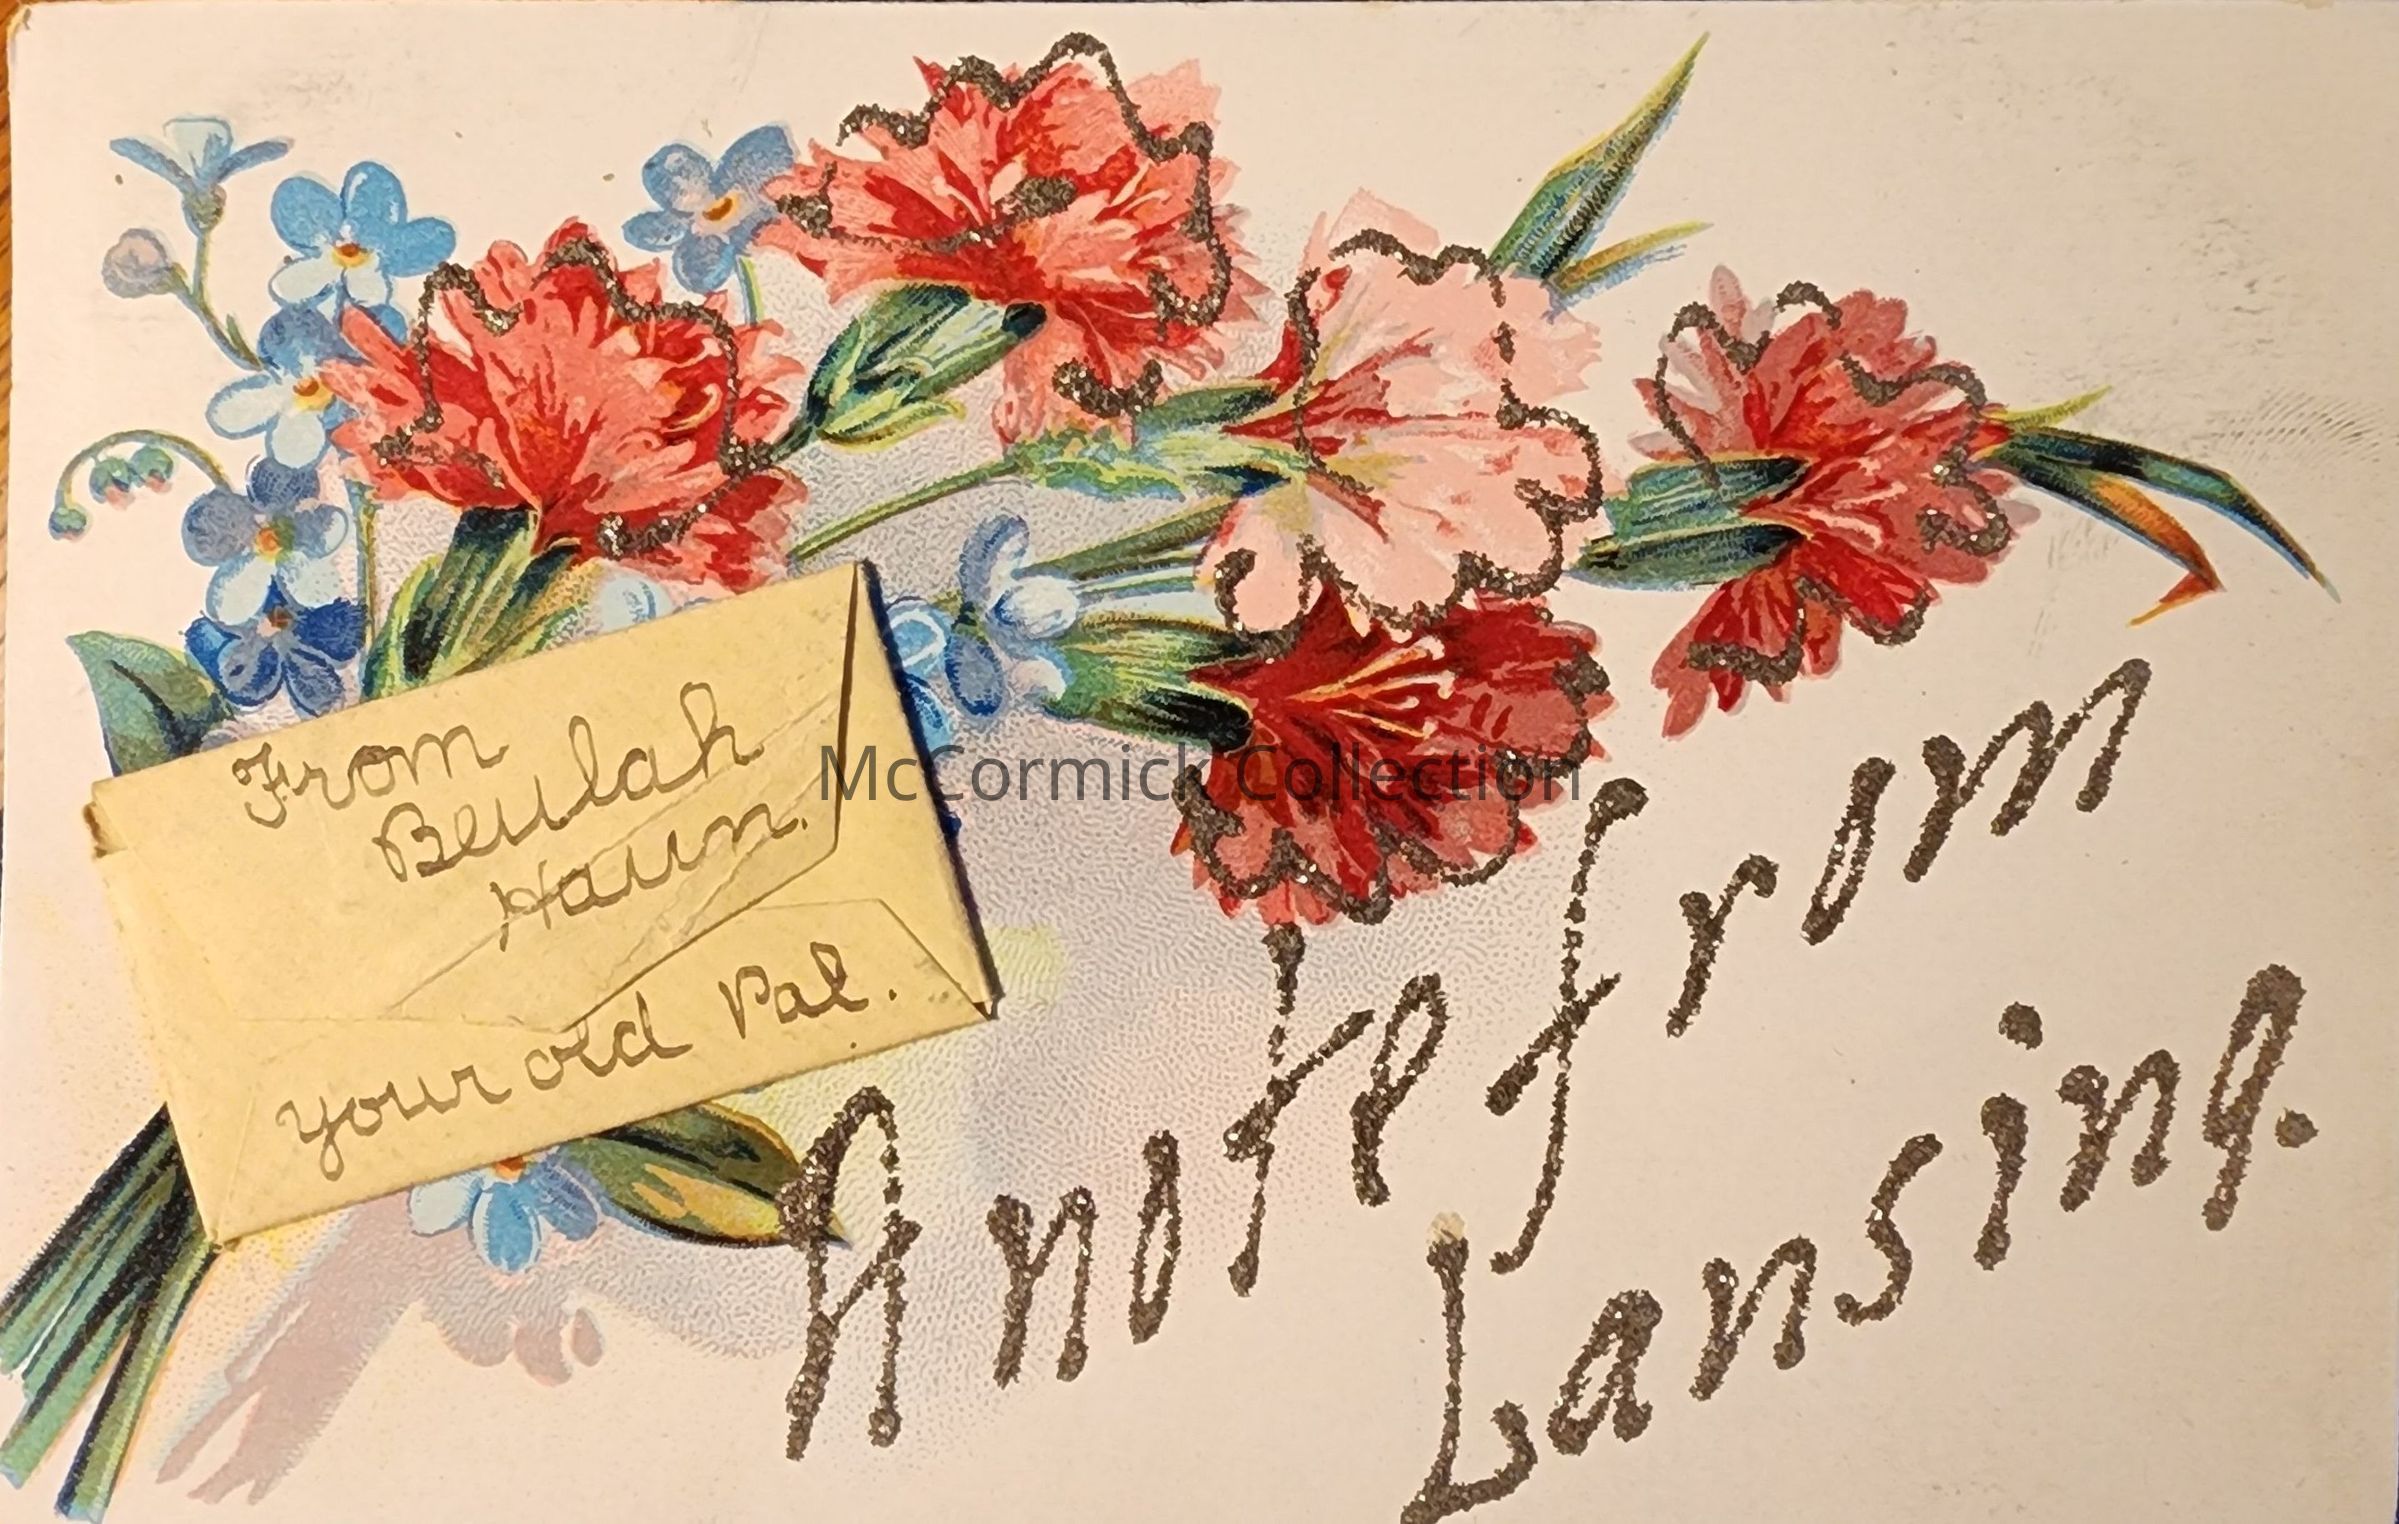 From
Beulah
Haun.
your old Pal.
McCormick Collection
A note from
Lansing.